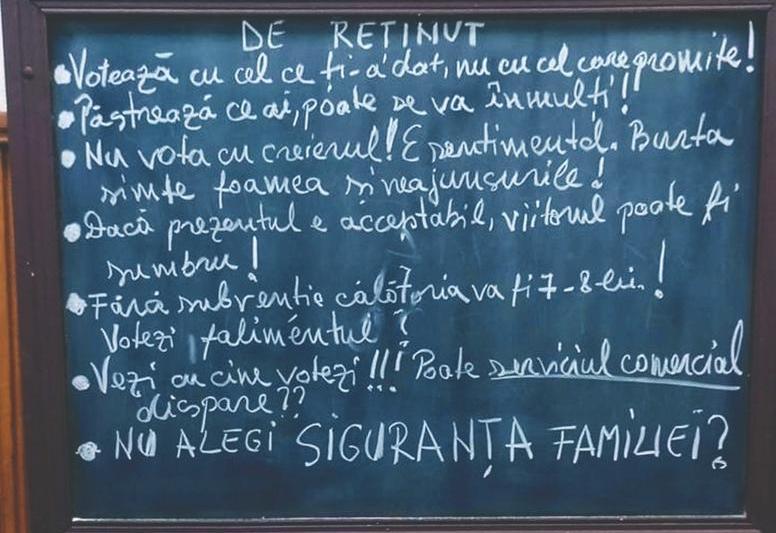 DE RETINUT
• Votează cu cel ce ți-a dat, nu cu cel care promite!
• Păstrează ce ai, poate se va înmulți!!
• Nu vota cu creierul! E sentimental. Burta
simte foamea și neajunsurile!
• Dacă prezentul e acceptabil, viitorul poate fi
sumbru!
• Fără subvenție călătoria va fi 7-8 lei.!
Votezi falimentul?
• Vezi cu cine votezi!!! Poate serviciul comercial
dispare??
• NU ALEGI SIGURANȚA FAMILIEI?